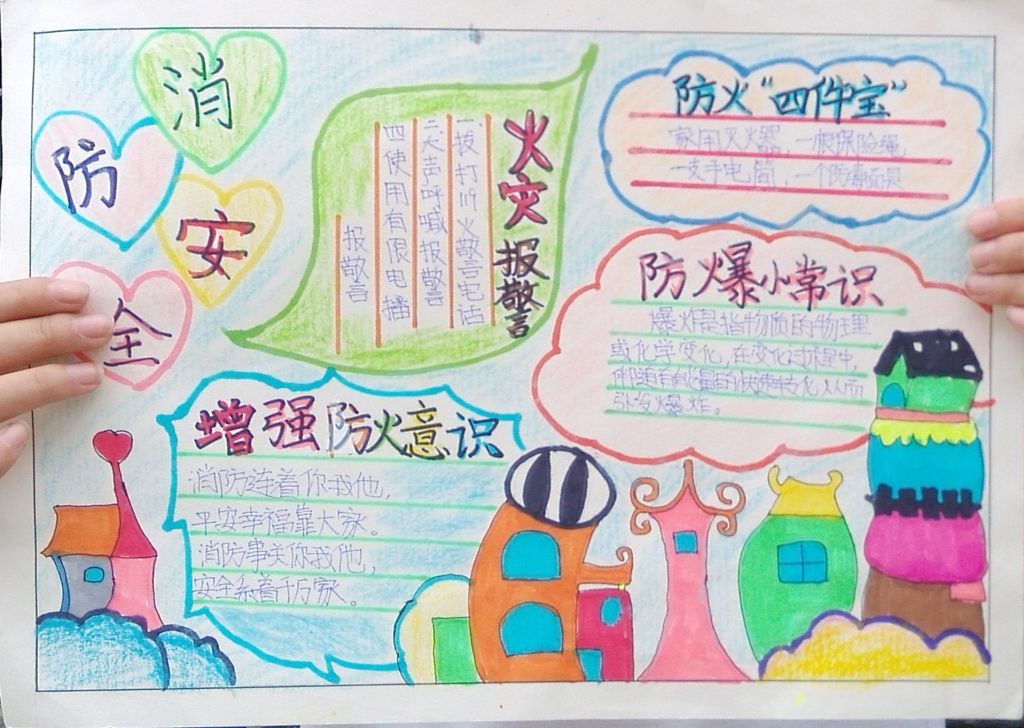 消
防
安
全
火灾报警
一拔打119火警电话
二大声呼喊报警
四使用有限电播
报警
防火“四件宝”
家用灭火器,一根保险绳
一支手电筒,一个防毒面具
防爆小常识
爆炸是指物质的物理
或化学变化,在变化过程中,
伴随有能量的快速转化,从而
引发爆炸。
增强防火意识
消防连着你我他,
平安幸福靠大家。
消防事关你我他,
安全系着千万家。